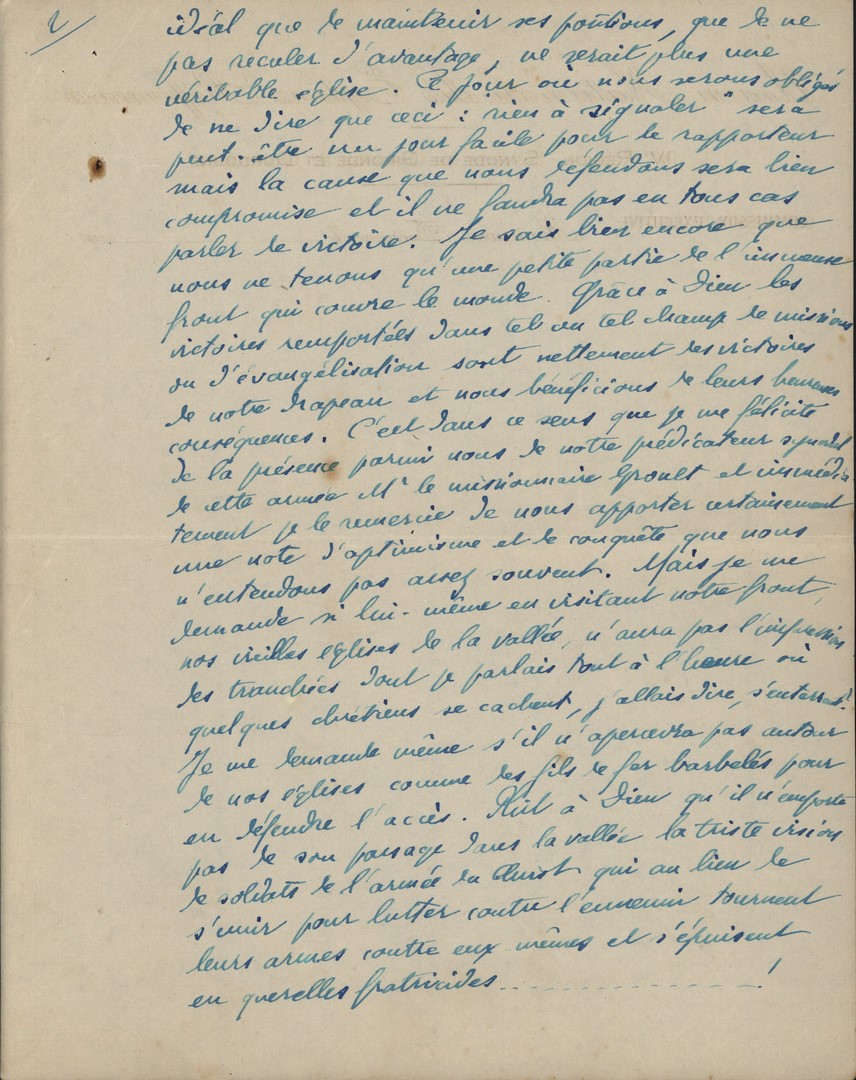 2/
idéal que de maintenir ses positions, que de ne
pas reculer d'avantage, ne serait plus une
véritable église. Ce jour où nous serons obligés
de ne dire que ceci : "rien à signaler" sera
peut-être un jour facile pour le rapporteur
mais la cause que nous défendons sera bien
compromise et il ne faudra pas en tous cas
parler de victoire. Je sais bien encore que
nous ne tenons qu'une petite partie de l'immense
front qui couvre le monde. Grâce à Dieu les
victoires remportées dans tel ou tel champ de missions
ou d'évangélisation sont nettement des victoires
de notre drapeau et nous bénéficions de leurs heureuses
conséquences. C'est dans ce sens que je me félicite
de la présence parmi nous de notre prédicateur synodal
de cette année Mr le missionnaire Groult et immédia
tement je le remercie de nous apporter certainement
une note d'optimisme et de conquête que nous
n'entendons pas assez souvent. Mais je me
demande si lui-même en visitant notre front,
nos vieilles églises de la vallée, n'aura pas l'impression
des tranchées dont je parlais tout à l'heure où
quelques chrétiens se cachent, j'allais dire, s'enterrent?
Je me demande même s'il n'apercevra pas autour
de nos églises comme des fils de fer barbelés pour
en défendre l'accès. Plût à Dieu qu'il n'emporte
pas de son passage dans la vallée la triste vision
de soldats de l'armée du Christ qui au lieu de
s'unir pour lutter contre l'ennemi tournent
leurs armes contre eux-mêmes et s'épuisent
en querelles fratricides..................!